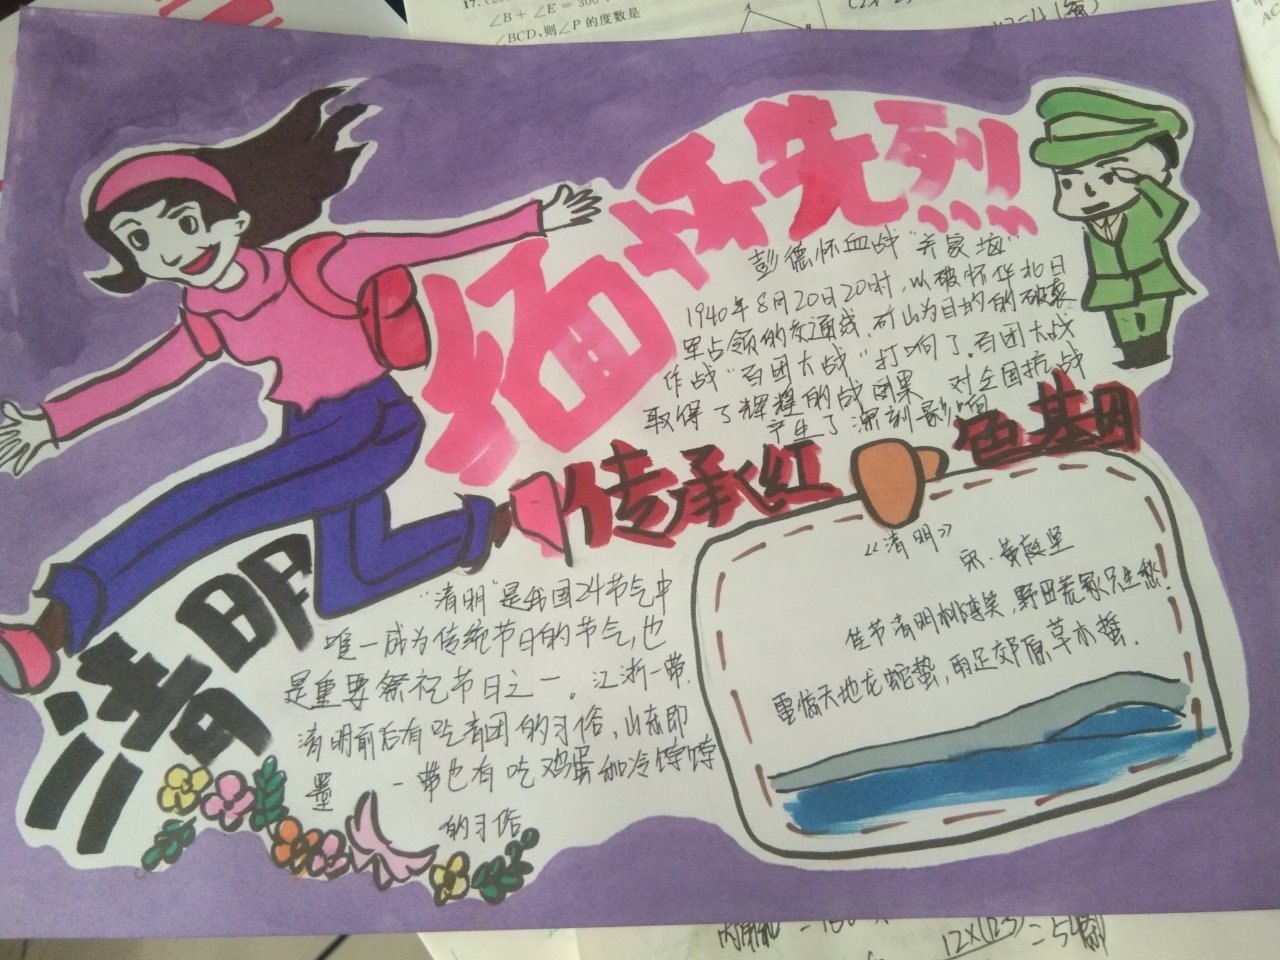 ∠B+∠E=300
∠BCD,则∠P的度数是
缅怀先烈
彭德怀血战"关家垴"
1940年8月20日20时,以破坏华北日
军占领的交通线,矿山为目的的破袭
作战"百团大战"打响了。百团大战
取得了辉煌的战果 对全国抗战
产生了深刻影响
传承红色基因
清明
"清明"是我国24节气中
唯一成为传统节日的节气,也
是重要祭祀节日之一。江浙一带,
清明前后有吃青团的习俗,山东即
墨一带也有吃鸡蛋和冷饽饽
的习俗
《清明》
宋·黄庭坚
佳节清明桃李笑,野田荒冢只生愁!
雷惊天地龙蛇蛰,雨足郊原草木